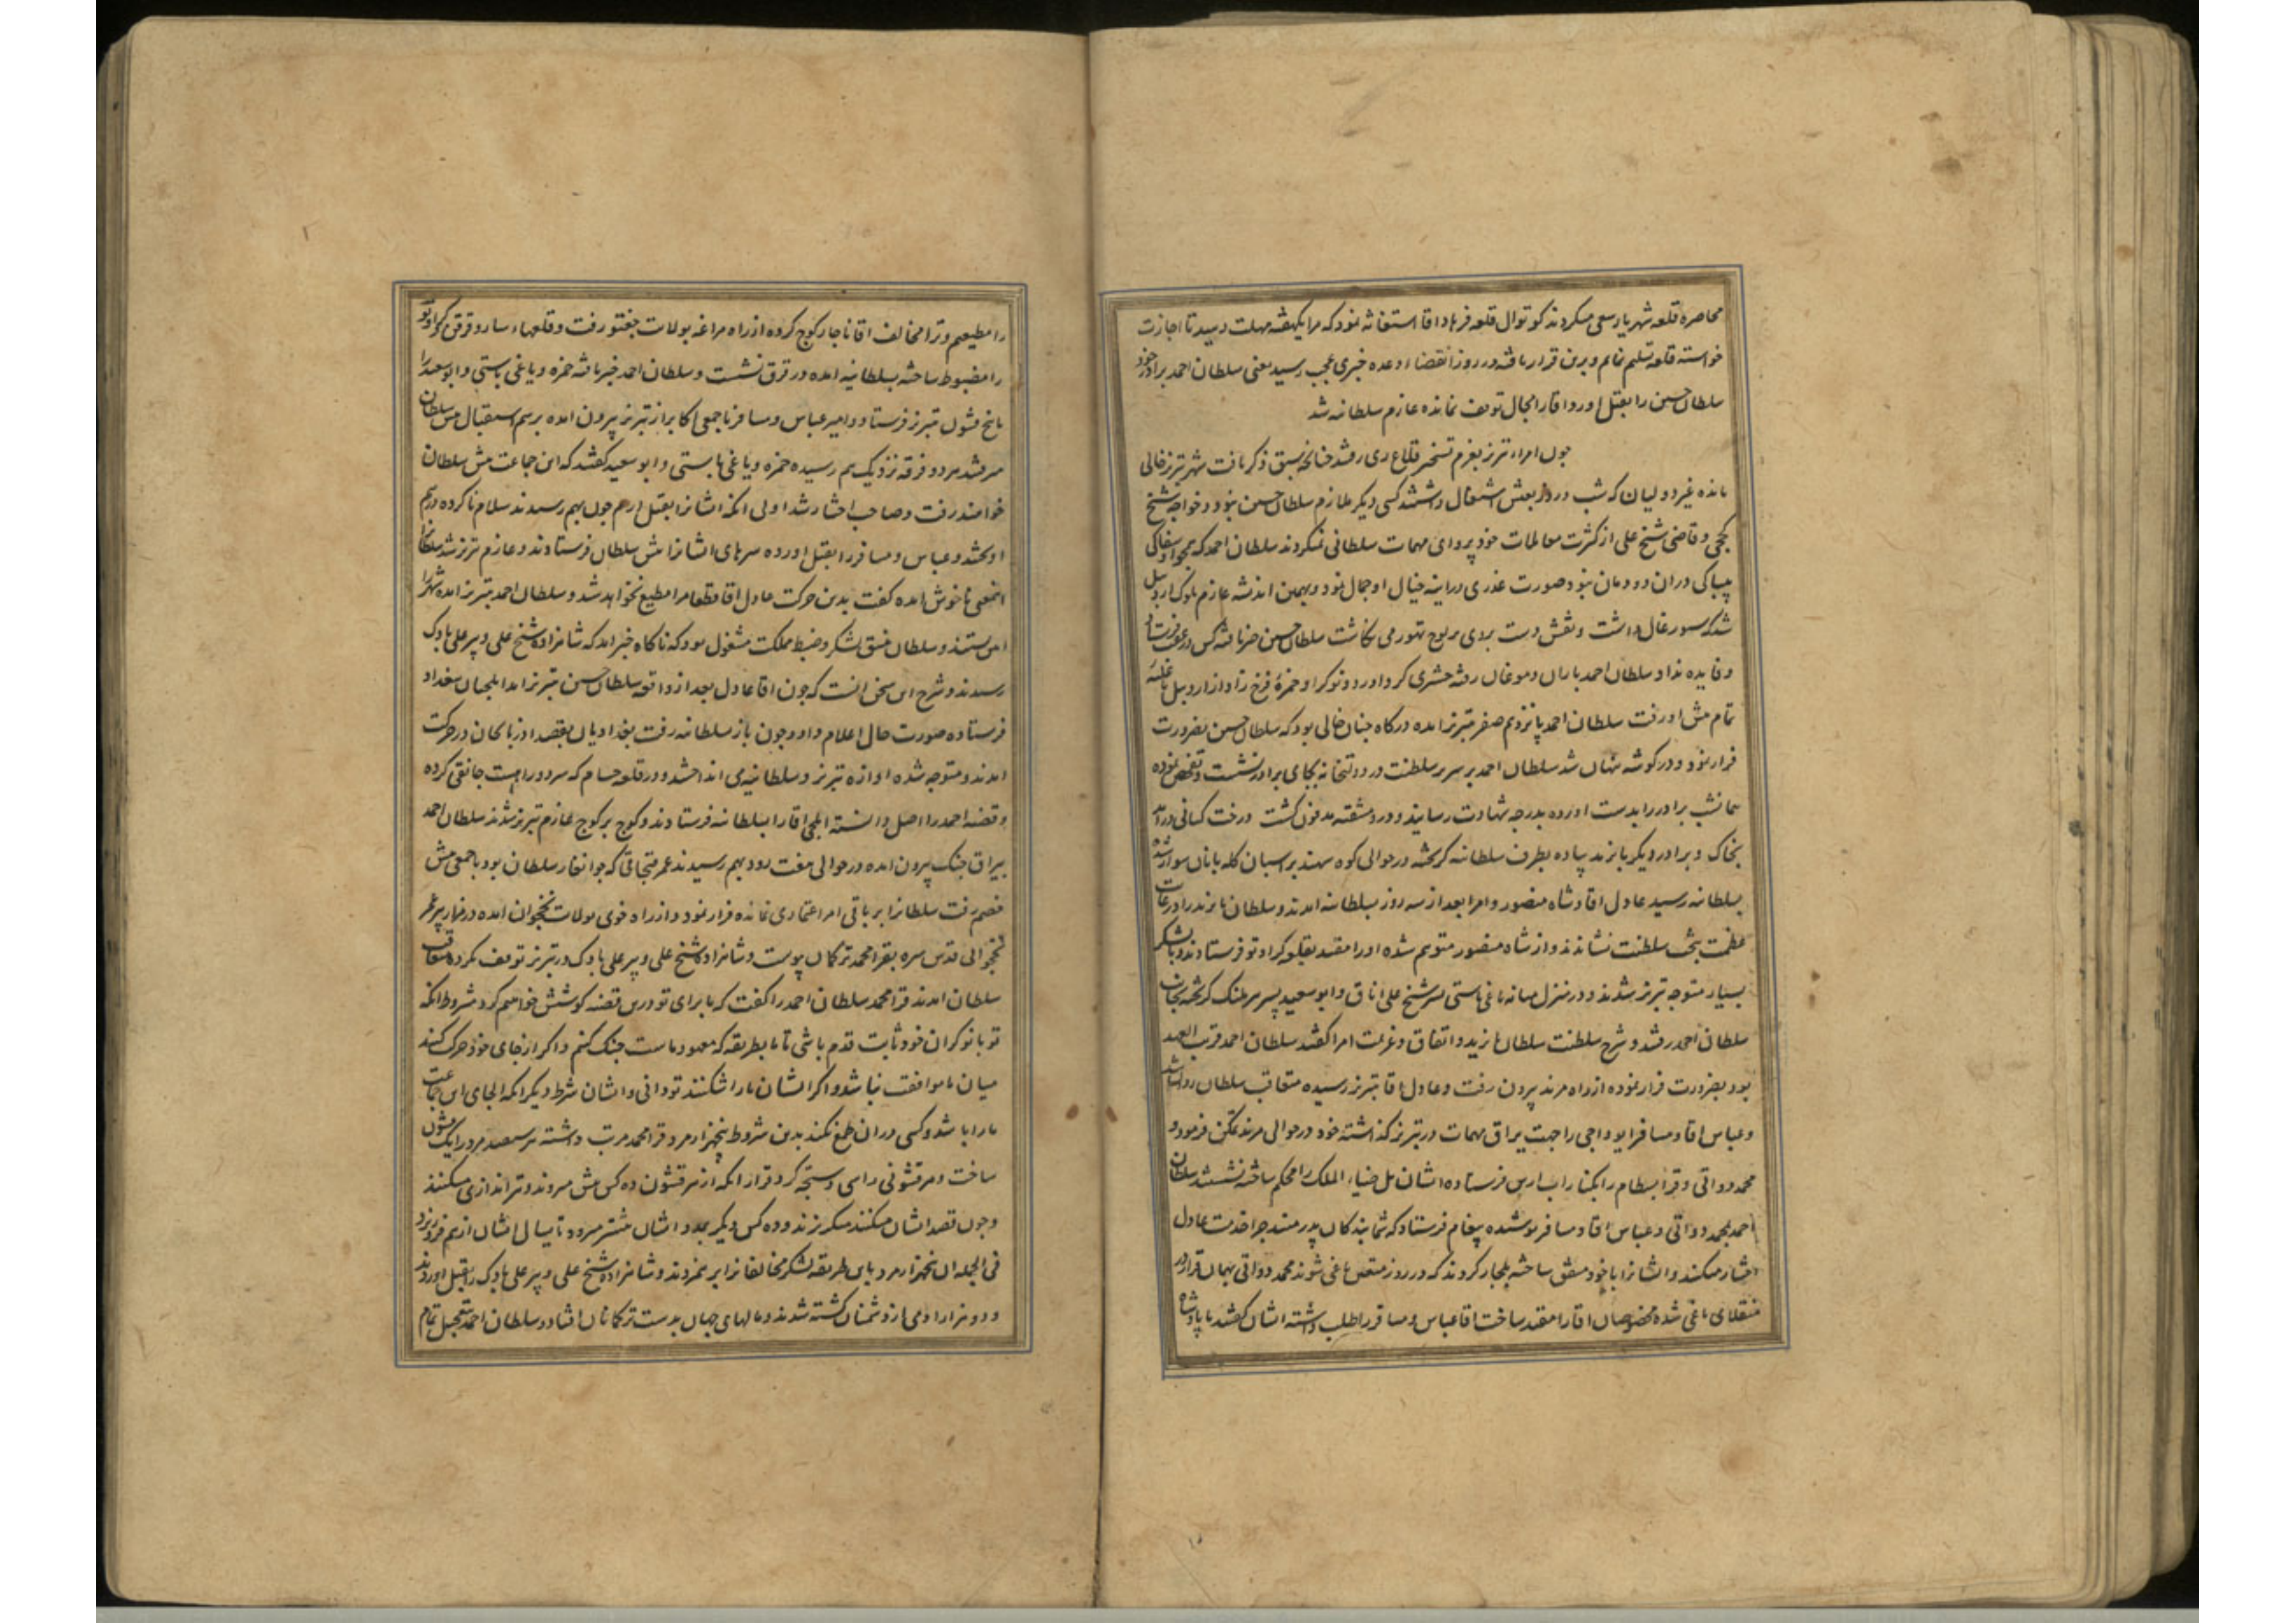 محاصره قلعه شهریار سعی میکردند کوتوال قلعه فرهاد اقا استغاثه نمود که مرا یکهفته مهلت دهید تا اجازت
خواسته قلعه تسلیم نمایم و برین قرار یافته در روز انقضاء وعده خبری عجب رسید یعنی سلطان احمد برادر خود
سلطان حسین را بقتل اورد و اقا را مجال توقف نمانده عازم سلطانیه شد
چون امراء تبریز بعزم تسخیر قلاع ری رفتند چنانچه سبق ذکر یافت شهر تبریز خالی
مانده غیر دولیان که شب و روز بعیش اشتغال داشتند کسی دیگر ملازم سلطان حسین نبود و خواجه شیخ
کججی و قاضی شیخ علی از کثرت معاملات خود پروای مهمات سلطانی نمیکردند سلطان احمد که بجز او سفاکی
بیباکی دران دودمان نبود صورت غدری در اینه خیال او جمال نمود و بهمین اندیشه عازم بلوک اردبیل
شد که سیورغال داشت و نقش دست بردی بر لوح تهور می نکاشت سلطان حسین خبر یافته کس در عقب فرستاد
و فایده نداد سلطان احمد باران و موغان رفته حشری کرد اورد و نوکر او حمزه فرخ زاد از اردبیل با غلبه
تمام پیش او رفت سلطان احمد پانزدهم صفر بتبریز امده درکاه چنان خالی بود که سلطان حسین بضرورت
فرار نمود و در کوشه پنهان شد سلطان احمد بر سریر سلطنت در دولتخانه بجای برادر نشست و تفحص نموده
همانشب برادر را بدست اورده بدرجه شهادت رسانید و در دمشقیه مدفون کشت درخت کیانی درامد
بخاک و برادر دیکر بایزید پیاده بطرف سلطانیه کریخته در حوالی کوه سهند بر اسبان کله بانان سوار شده
بسلطانیه رسید عادل اقا و شاه منصور و امرا بعد از سه روز بسلطانیه امدند و سلطان بایزید را در غایت
عظمت بتخت سلطنت نشاندند و از شاه منصور متوهم شده او را مقید بقلعه کراوتو فرستادند و با لشکر
بسیار متوجه تبریز شدند و در منزل میانه یاغی باستی پسر شیخ علی ایناق و ابو سعید پسر میر ملنک کریخته بجانب
سلطان احمد رفتند و شرح سلطنت سلطان بایزید و اتفاق و عزیمت امرا کفتند سلطان احمد قریب العهد
بود بضرورت فرار نموده از راه مرند بیرون رفت و عادل اقا بتبریز رسیده متعاقب سلطان روانه شد
و عباس اقا و مسافر ایوداجی را جهت یراق مهمات در تبریز کذاشته خود در حوالی مرند تمکن فرمود و
محمد دواتی و قرا بسطام را بکنار اب ارس فرستاده ایشان پل ضیاء الملک را محکم ساخته نشستند سلطان
احمد بمحمد دواتی و عباس اقا و مسافر پوشیده پیغام فرستاد که شما بندکان پدر منید چرا خدمت عادل
اختیار میکنید و ایشانرا با خود متفق ساخته بلجار کردند که در روز متعین یاغی شوند محمد دواتی بهمان قرار در
منقلای یاغی شده مخصوصان اقا را مقید ساخت اقا عباس و مسافر را طلب داشته ایشان کفتند ما پادشاه
را مطیعیم و ترا مخالف اقا ناچار کوچ کرده از راه مراغه بولایت جغتو رفت و قلعهاء سارو قرقن و کراوتو
را مضبوط ساخته بسلطانیه امده در قرق نشست و سلطان احمد خبر یافته حمزه و یاغی باستی و ابو سعید را
با پنج قشون بتبریز فرستاد و امیر عباس و مسافر با جمعی اکابر از تبریز بیرون امده برسم استقبال پیش سلطان
میرفتند هر دو فرقه نزدیک هم رسیده حمزه و یاغی باستی و ابو سعید کفتند که این جماعت پیش سلطان
خواهند رفت و صاحب اختیار شد اولی انکه ایشانرا بقتل اریم چون بهم رسیدند سلام ناکرده درهم
اویختند و عباس و مسافر را بقتل اورده سرهای ایشانرا پیش سلطان فرستادند و عازم تبریز شدند سلطانرا
انمعنی ناخوش امده کفت بدین حرکت عادل اقا قطعا مرا مطیع نخواهد شد و سلطان احمد بتبریز امده شهر را
امن ستدند و سلطان بنسق لشکر و ضبط مملکت مشغول بود که ناکاه خبر امد که شاهزاده شیخ علی و پیر علی بادک
رسیدند و شرح این سخن انست که چون اقا عادل بعد از واقعه سلطان حسین بتبریز امد ایلچیان ببغداد
فرستاده صورت حال اعلام داد و چون باز سلطانیه رفت بغدادیان بقصد اذربایجان در حرکت
امدند و متوجه شده اوازه تبریز و سلطانیه می انداختند و در قلعه حسام که سر دو راهست جانقی کرده
و قضیه احمد را اصل دانسته ایلچی اقا را بسلطانیه فرستادند و کوچ بر کوچ عازم تبریز شدند سلطان احمد
بیراق جنک بیرون امده در حوالی هفت رود بهم رسیدند عمر قبجاقی که جوانغار سلطان بود با جمعی پیش
خصم رفت سلطانرا بر باقی امرا اعتمادی نمانده فرار نمود و از راه خوی بولایت نخجوان امده در مزار پیر عمر
نخجوانی قدس سره بقرا محمد ترکمان پیوست و شاهزاده شیخ علی و پیر علی بادک در تبریز توقف نکرده متعاقب
سلطان امدند قرا محمد سلطان احمد را کفت که ما برای تو درین قضیه کوشش خواهیم کرد مشروط انکه
تو با نوکران خود ثابت قدم باشی تا ما بطریقه که معهود ماست جنک کنیم و اکر از جای خود حرکت کنند
میان ما موافقت نباشد و اکر ایشان ما را شکنند تو دانی و ایشان شرط دیکر انکه الجای این جماعت
ما را باشد و کسی دران طمع نکند بدین شروط پنجهزار مرد قرا محمد مرتب داشته هر سیصد مرد را یک قشون
ساخت و هر قشونی راسی و سبجه کرد و قرار انکه از هر قشون ده کس پیش میروند و تیراندازی میکنند
و چون قصد ایشان میکنند میکریزند و ده کس دیکر بمدد ایشان پیشتر میرود تا سیال ایشان از هم فرو ریزد
فی الجمله ان پنجهزار مرد باین طریقه لشکر مخالفانرا برهم زدند و شاهزاده شیخ علی و پیر علی بادک را بقتل اوردند
و دو هزار ادمی از دشمنان کشته شدند و مالهای جهان بدست ترکمانان افتاد و سلطان احمد بتعجیل تمام